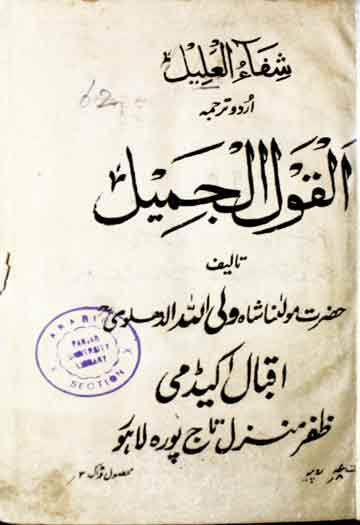 شفاء العلیل
اردو ترجمہ
القول الجمیل
تالیف
حضرت مولٰنا شاہ ولی اللہ الدھلوی
اقبال اکیڈمی
ظفر منزل تاج پورہ لاہور
محصول ڈاک ۳
ARABIC
PANJAB
UNIVERSITY
LIBRARY
SECTION